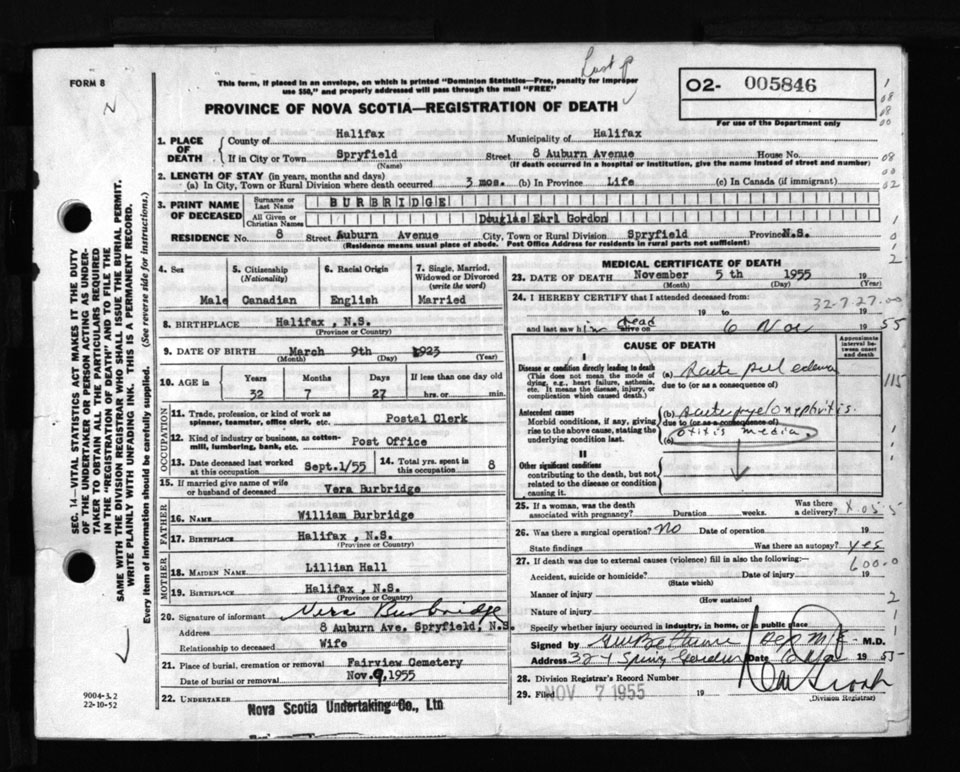 FORM 8
This form, if placed in an envelope, on which is printed "Dominion Statistics—Free, penalty for improper
use $50," and properly addressed will pass through the mail "FREE"
PROVINCE OF NOVA SCOTIA—REGISTRATION OF DEATH
O2- 005846
For use of the Department only
1. PLACE OF DEATH
County of Halifax Municipality of Halifax
If in City or Town Spryfield Street 8 Auburn Avenue House No.
(Name) (If death occurred in a hospital or institution, give the name instead of street and number)
2. LENGTH OF STAY (in years, months and days)
(a) In City, Town or Rural Division where death occurred 3 mos. (b) In Province Life (c) In Canada (if immigrant)
3. PRINT NAME OF DECEASED
Surname or Last Name BURBRIDGE
All Given or Christian Names Douglas Earl Gordon
RESIDENCE No. 8 Street Auburn Avenue City, Town or Rural Division Spryfield Province N.S.
(Residence means usual place of abode. Post Office Address for residents in rural parts not sufficient)
4. Sex Male
5. Citizenship (Nationality) Canadian
6. Racial Origin English
7. Single, Married, Widowed or Divorced (write the word) Married
8. BIRTHPLACE Halifax, N.S.
(Province or Country)
9. DATE OF BIRTH March 9th 1923
(Month) (Day) (Year)
10. AGE in Years Months Days If less than one day old
32 7 27 hrs. or min.
OCCUPATION
11. Trade, profession, or kind of work as
spinner, teamster, office clerk, etc. Postal Clerk
12. Kind of industry or business, as cotton-
mill, lumbering, bank, etc. Post Office
13. Date deceased last worked
at this occupation Sept.1/55
14. Total yrs. spent in
this occupation 8
15. If married give name of wife
or husband of deceased Vera Burbridge
FATHER
16. NAME William Burbridge
17. BIRTHPLACE Halifax, N.S.
(Province or Country)
MOTHER
18. MAIDEN NAME Lillian Hall
19. BIRTHPLACE Halifax, N.S.
(Province or Country)
20. Signature of informant Vera Burbridge
Address 8 Auburn Ave. Spryfield, N.S.
Relationship to deceased Wife
21. Place of burial, cremation or removal Fairview Cemetery
Date of burial or removal Nov.9,1955
22. UNDERTAKER
Nova Scotia Undertaking Co., Ltd
MEDICAL CERTIFICATE OF DEATH
23. DATE OF DEATH November 5th 1955 19
(Month) (Day) (Year)
24. I HEREBY CERTIFY that I attended deceased from:
32-7-27-00
19 to 19
and last saw him dead alive on 6 Nov 55
CAUSE OF DEATH
Approximate interval between onset and death
I
Disease or condition directly leading to death
(This does not mean the mode of
dying, e.g., heart failure, asthenia,
etc. It means the disease, injury, or
complication which caused death.)
(a) Acute pul edema
due to (or as a consequence of)
Antecedent causes
Morbid conditions, if any, giving
rise to the above cause, stating the
underlying condition last.
(b) acute pyelonephritis.
due to (or as a consequence of)
(c) otitis media
II
Other significant conditions
contributing to the death, but not
related to the disease or condition
causing it.
25. If a woman, was the death
associated with pregnancy? Duration weeks. Was there a delivery?
26. Was there a surgical operation? No Date of operation 19
State findings Was there an autopsy? yes
27. If death was due to external causes (violence) fill in also the following:
600.0
Accident, suicide or homicide? Date of injury 19
(State which)
Manner of injury
(How sustained
Nature of injury
Specify whether injury occurred in industry, in home, or in public place
Signed by M.D.
Address 324 Spring Garden Date 19 55
28. Division Registrar's Record Number
29. Filed NOV 7 1955 19
(Division Registrar)
SEC. 14—VITAL STATISTICS ACT MAKES IT THE DUTY
OF THE UNDERTAKER OR PERSON ACTING AS UNDER-
TAKER TO OBTAIN ALL THE PARTICULARS REQUIRED
IN THE "REGISTRATION OF DEATH" AND TO FILE THE
SAME WITH THE DIVISION REGISTRAR WHO SHALL ISSUE THE BURIAL PERMIT.
WRITE PLAINLY WITH UNFADING INK. THIS IS A PERMANENT RECORD.
Every item of information should be carefully supplied. (See reverse side for instructions.)
9004-3.2
22-10-52